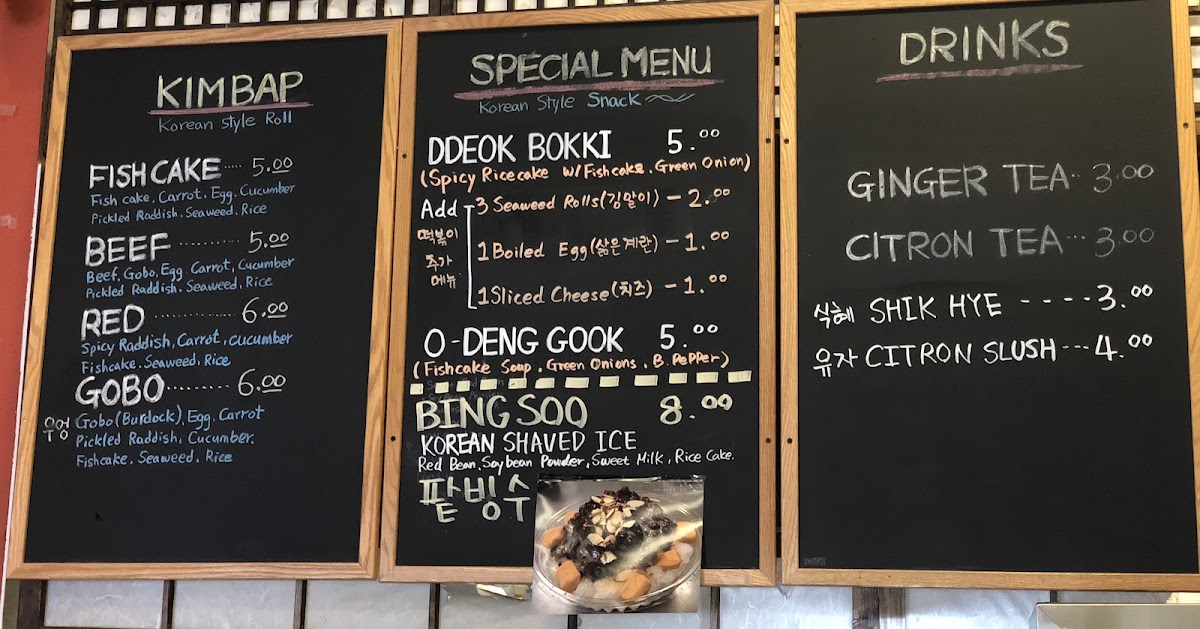 KIMBAP
Korean Style Roll
FISH CAKE ..... 5.00
Fish cake, Carrot, Egg, Cucumber
Pickled Raddish, Seaweed, Rice
BEEF .......... 5.00
Beef, Gobo, Egg, Carrot, Cucumber
Pickled Raddish, Seaweed, Rice
RED ............. 6.00
Spicy Raddish, Carrot, cucumber
Fishcake, Seaweed, Rice
GOBO ......... 6.00
우엉 Gobo (Burdock), Egg, Carrot
Pickled Raddish, Cucumber.
Fishcake, Seaweed, Rice
SPECIAL MENU
Korean Style Snack
DDEOK BOKKI 5.00
(Spicy Ricecake w/Fishcake, Green Onion)
Add 3 Seaweed Rolls (김말이) - 2.00
떡볶이
추가
메뉴
1 Boiled Egg (삶은계란) - 1.00
1 Sliced Cheese (치즈) - 1.00
O-DENG GOOK 5.00
(Fishcake Soup, Green Onions, B. Pepper)
BING SOO 8.00
KOREAN SHAVED ICE
Red Bean, Soybean Powder, Sweet Milk, Rice Cake.
팥빙수
DRINKS
GINGER TEA .. 3.00
CITRON TEA ... 3.00
식혜 SHIK HYE ---- 3.00
유자 CITRON SLUSH --- 4.00